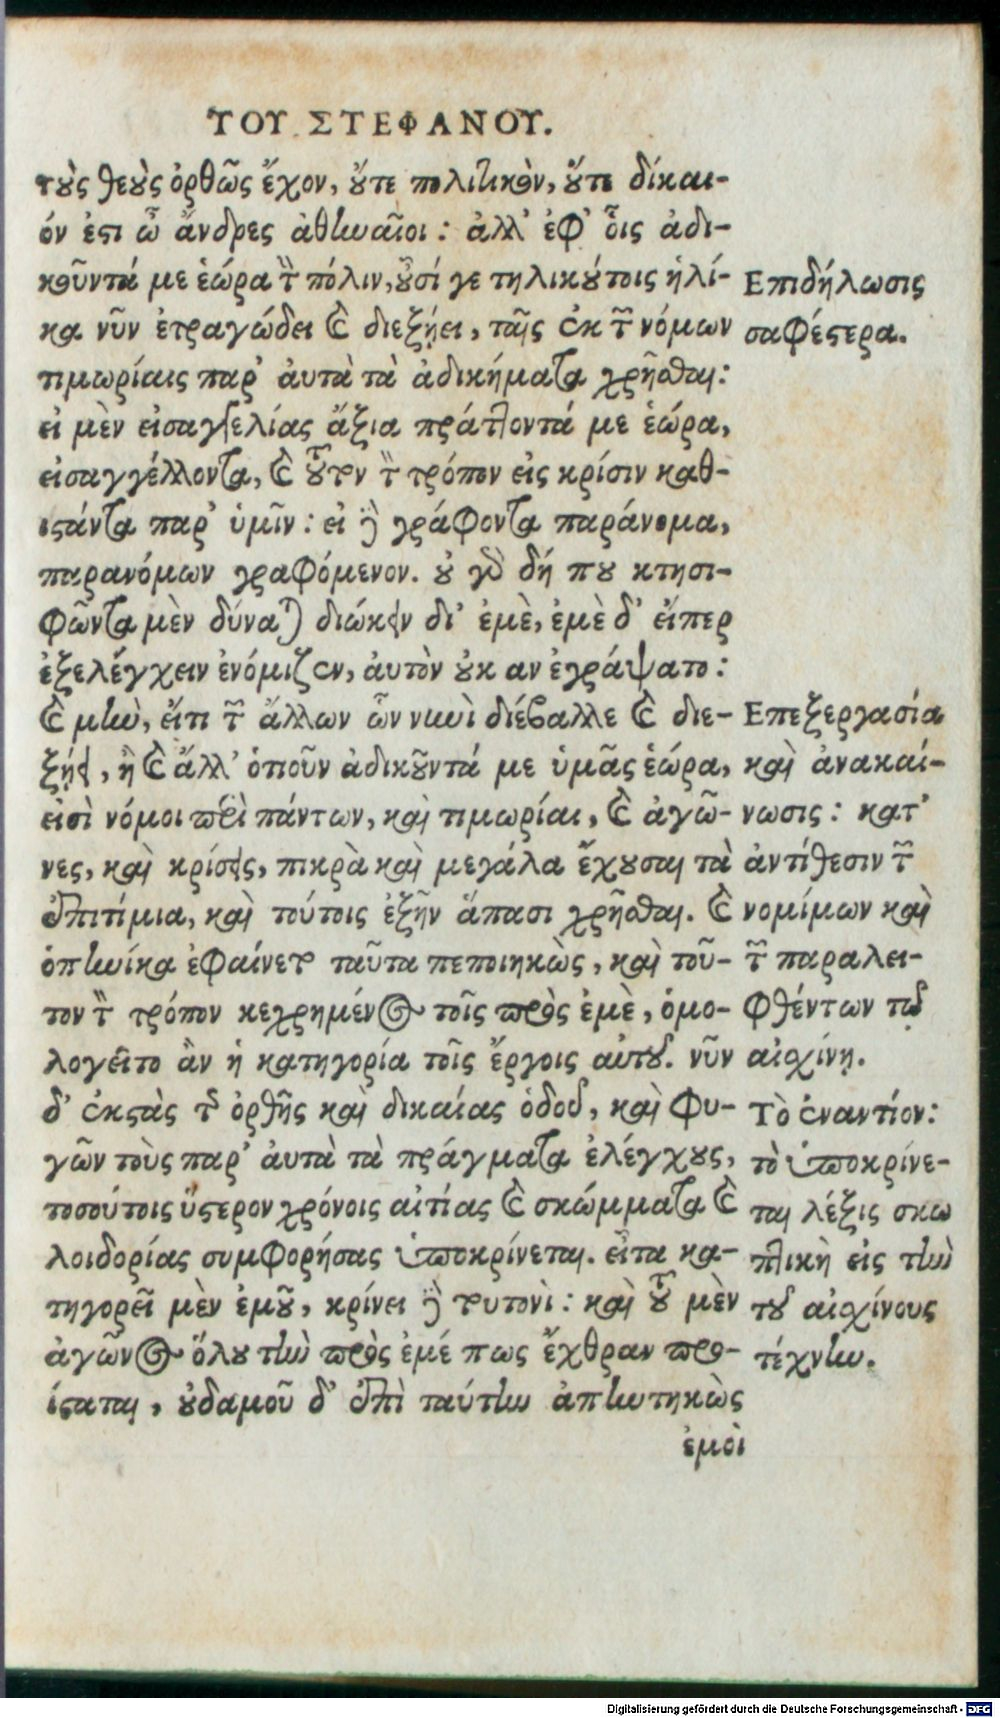 ΤΟΥ ΣΤΕΦΑΝΟΥ.
τοὺς θεοὺς ὀρθῶς ἔχον, οὔτε πολιτικὸν, οὔτε δίκαι-
όν ἐστι ὦ ἄνδρες ἀθηναῖοι: ἀλλ' ἐφ' οἷς ἀδι-
κοῦντά με ἑώρα τὴν πόλιν, οὖσί γε τηλικούτοις ἡλί-
κα νῦν ἐτραγώδει καὶ διεξῄει, ταῖς ἐκ τῶν νόμων
τιμωρίαις παρ' αὐτὰ τὰ ἀδικήματα χρῆσθαι:
εἰ μὲν εἰσαγγελίας ἄξια πράττοντά με ἑώρα,
εἰσαγγέλλοντα, καὶ τοῦτον τὸν τρόπον εἰς κρίσιν καθ-
ιστάντα παρ' ὑμῖν: εἰ δὲ γράφοντα παράνομα,
παρανόμων γραφόμενον. οὐ γὰρ δή που κτησι-
φῶντα μὲν δύναται διώκειν δι' ἐμὲ, ἐμὲ δ' εἴπερ
ἐξελέγχειν ἐνόμιζεν, αὐτὸν οὐκ αν ἐγράψατο:
καὶ μὴν, εἴτι τῶν ἄλλων ὧν νυνὶ διέβαλλε καὶ διε-
ξῄει, ἢ καὶ ἄλλ' ὁποῦν ἀδικοῦντά με ὑμᾶς ἑώρα,
εἰσὶ νόμοι περὶ πάντων, καὶ τιμωρίαι, καὶ ἀγῶ-
νες, καὶ κρίσεις, πικρὰ καὶ μεγάλα ἔχουσαι τὰ
ἐπιτίμια, καὶ τούτοις ἐξῆν ἅπασι χρῆσθαι. καὶ
ὁπηνίκα ἐφαίνετο ταῦτα πεποιηκὼς, καὶ τοῦ-
τον τὸν τρόπον κεχρημένος τοῖς πρὸς ἐμὲ, ὁμο-
λογεῖτο ἂν ἡ κατηγορία τοῖς ἔργοις αὐτοῦ. νῦν
δ' ἐκστὰς τῆς ὀρθῆς καὶ δικαίας ὁδοῦ, καὶ φυ-
γὼν τοὺς παρ' αὐτὰ τὰ πράγματα ἐλέγχους,
τοσούτοις ὕστερον χρόνοις αἰτίας καὶ σκώμματα καὶ
λοιδορίας συμφορήσας ὑποκρίνεται. εἶτα κα-
τηγορεῖ μὲν ἐμοῦ, κρίνει δὲ τουτονὶ: καὶ τοῦ μὲν
ἀγῶνος ὅλου τὴν πρὸς ἐμέ πως ἔχθραν προ-
ίσταται, οὐδαμοῦ δ' ἐπὶ ταύτην ἀπηντηκὼς
ἐμοὶ
Επιδήλωσις
σαφέστερα.
Επεξεργασία
καὶ ἀνακαί-
νωσις: κατ'
ἀντίθεσιν τῶν
νομίμων καὶ
τῶν παραλει-
φθέντων τῷ
αἰσχίνῃ.
Τὸ ἐναντίον:
τὸ ὑποκρίνε-
ται λέξις σκω
πτικὴ εἰς τὴν
τοῦ αἰσχίνους
τέχνην.
Digitalisierung gefördert durch die Deutsche Forschungsgemeinschaft - DFG